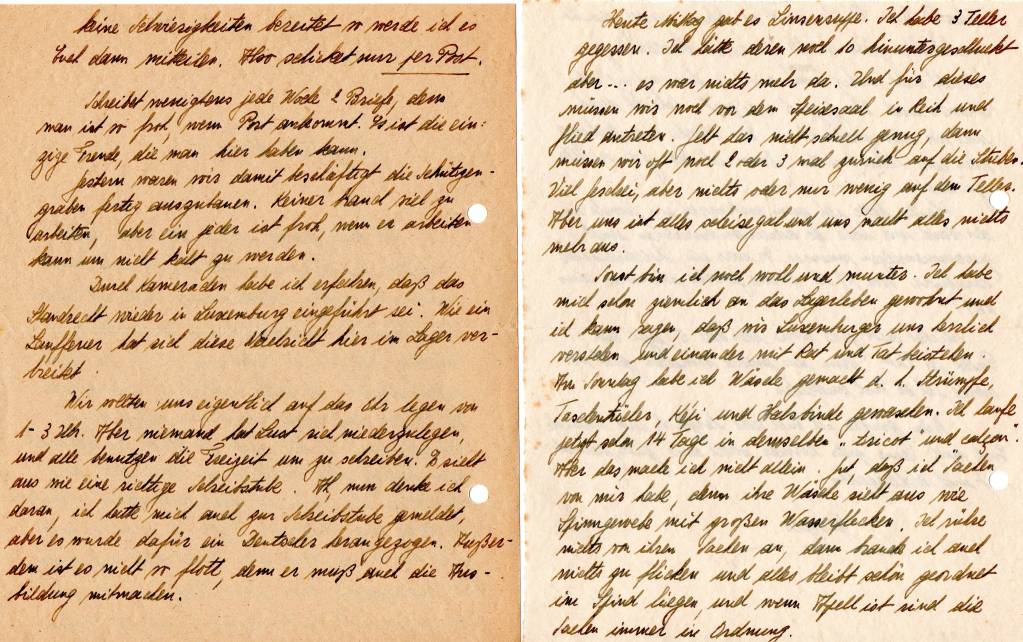 keine Schwierigkeiten bereitet so werde ich es
Euch dann mitteilen. Also schicket nur per Post.
Schreibet wenigstens jede Woche 2 Briefe, denn
man ist so froh, wenn Post ankommt. Es ist die ein-
zige Freude, die man hier haben kann.
Gestern waren wir damit beschäftigt die Schützen-
gräben fertig auszubauen. Keiner fand viel zu
arbeiten, aber ein jeder ist froh, wenn er arbeiten
kann um nicht kalt zu werden.
Durch Kameraden habe ich erfahren, daß das
Standrecht wieder in Luxemburg eingeführt sei. Wie ein
Lauffeuer hat sich diese Nachricht hier im Lager ver-
breitet.
Wir sollten uns eigentlich auf das Ohr legen von
1-3 Uhr. Aber niemand hat Lust sich niederzulegen,
und alle benutzen die Freizeit um zu schreiben. Es sieht
aus wie eine richtige Schreibstube. Ah, nun denke ich
daran, ich hatte mich auch zur Schreibstube gemeldet,
aber es wurde dafür ein Deutscher herangezogen. Außer-
dem ist es nicht so flott, denn er muß auch die Aus-
bildung mitmachen.
Heute Mittag gab es Linsensuppe. Ich habe 3 Teller
gegessen. Ich hätte deren noch 10 hinuntergeschluckt
aber... es war nichts mehr da. Und für dieses
müssen wir noch vor dem Speisesaal in Reih und
Glied antreten. Geht das nicht schnell genug, dann
müssen wir oft noch 2 oder 3 mal zurück auf die Stuben.
Viel Geschrei, aber nichts oder nur wenig auf dem Teller.
Aber uns ist alles scheissegal und uns macht alles nichts
mehr aus.
Sonst bin ich noch wohl und munter. Ich habe
mich schon ziemlich an das Lagerleben gewöhnt und
ich kann sagen, daß wir Luxemburger uns herzlich
verstehen und einander mit Rat und Tat beistehen.
Am Sonntag habe ich Wäsche gemacht d. h. Strümpfe,
Taschentücher, Képi und Halsbinde gewaschen. Ich laufe
jetzt schon 14 Tage in demselben "tricot" und caleçon".
Aber das mache ich nicht allein. Gut, daß ich Sachen
von mir habe, denn ihre Wäsche sieht aus wie
Spinngewebe mit großen Wasserflecken. Ich rühre
nichts von ihren Sachen an, dann brauche ich auch
nichts zu flicken und alles bleibt schön geordnet
im Spind liegen und wenn Apell ist sind die
Sachen immer in Ordnung.